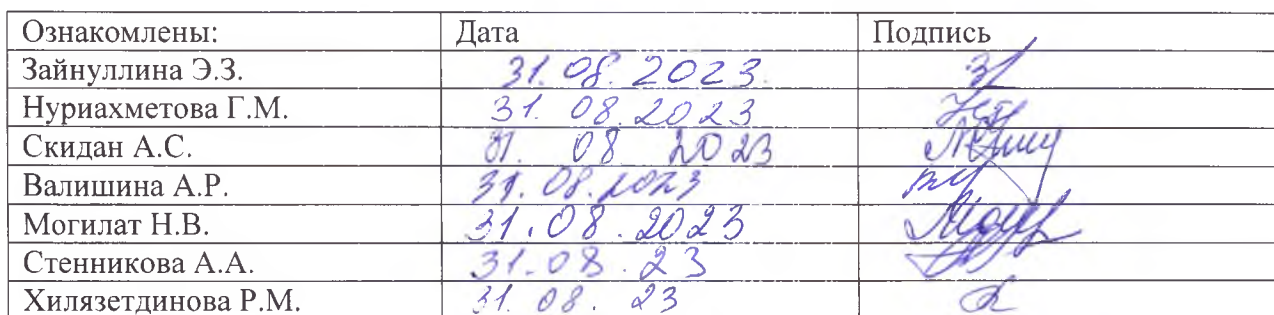 Ознакомлены: Дата Подпись
Зайнуллина Э.З. 31.08.2023.
Нуриахметова Г.М. 31.08.2023
Скидан А.С. 31. 08 2023
Валишина А.Р. 31.08.2023
Могилат Н.В. 31.08.2023
Стенникова А.А. 31.08.23
Хилязетдинова Р.М. 31.08.23